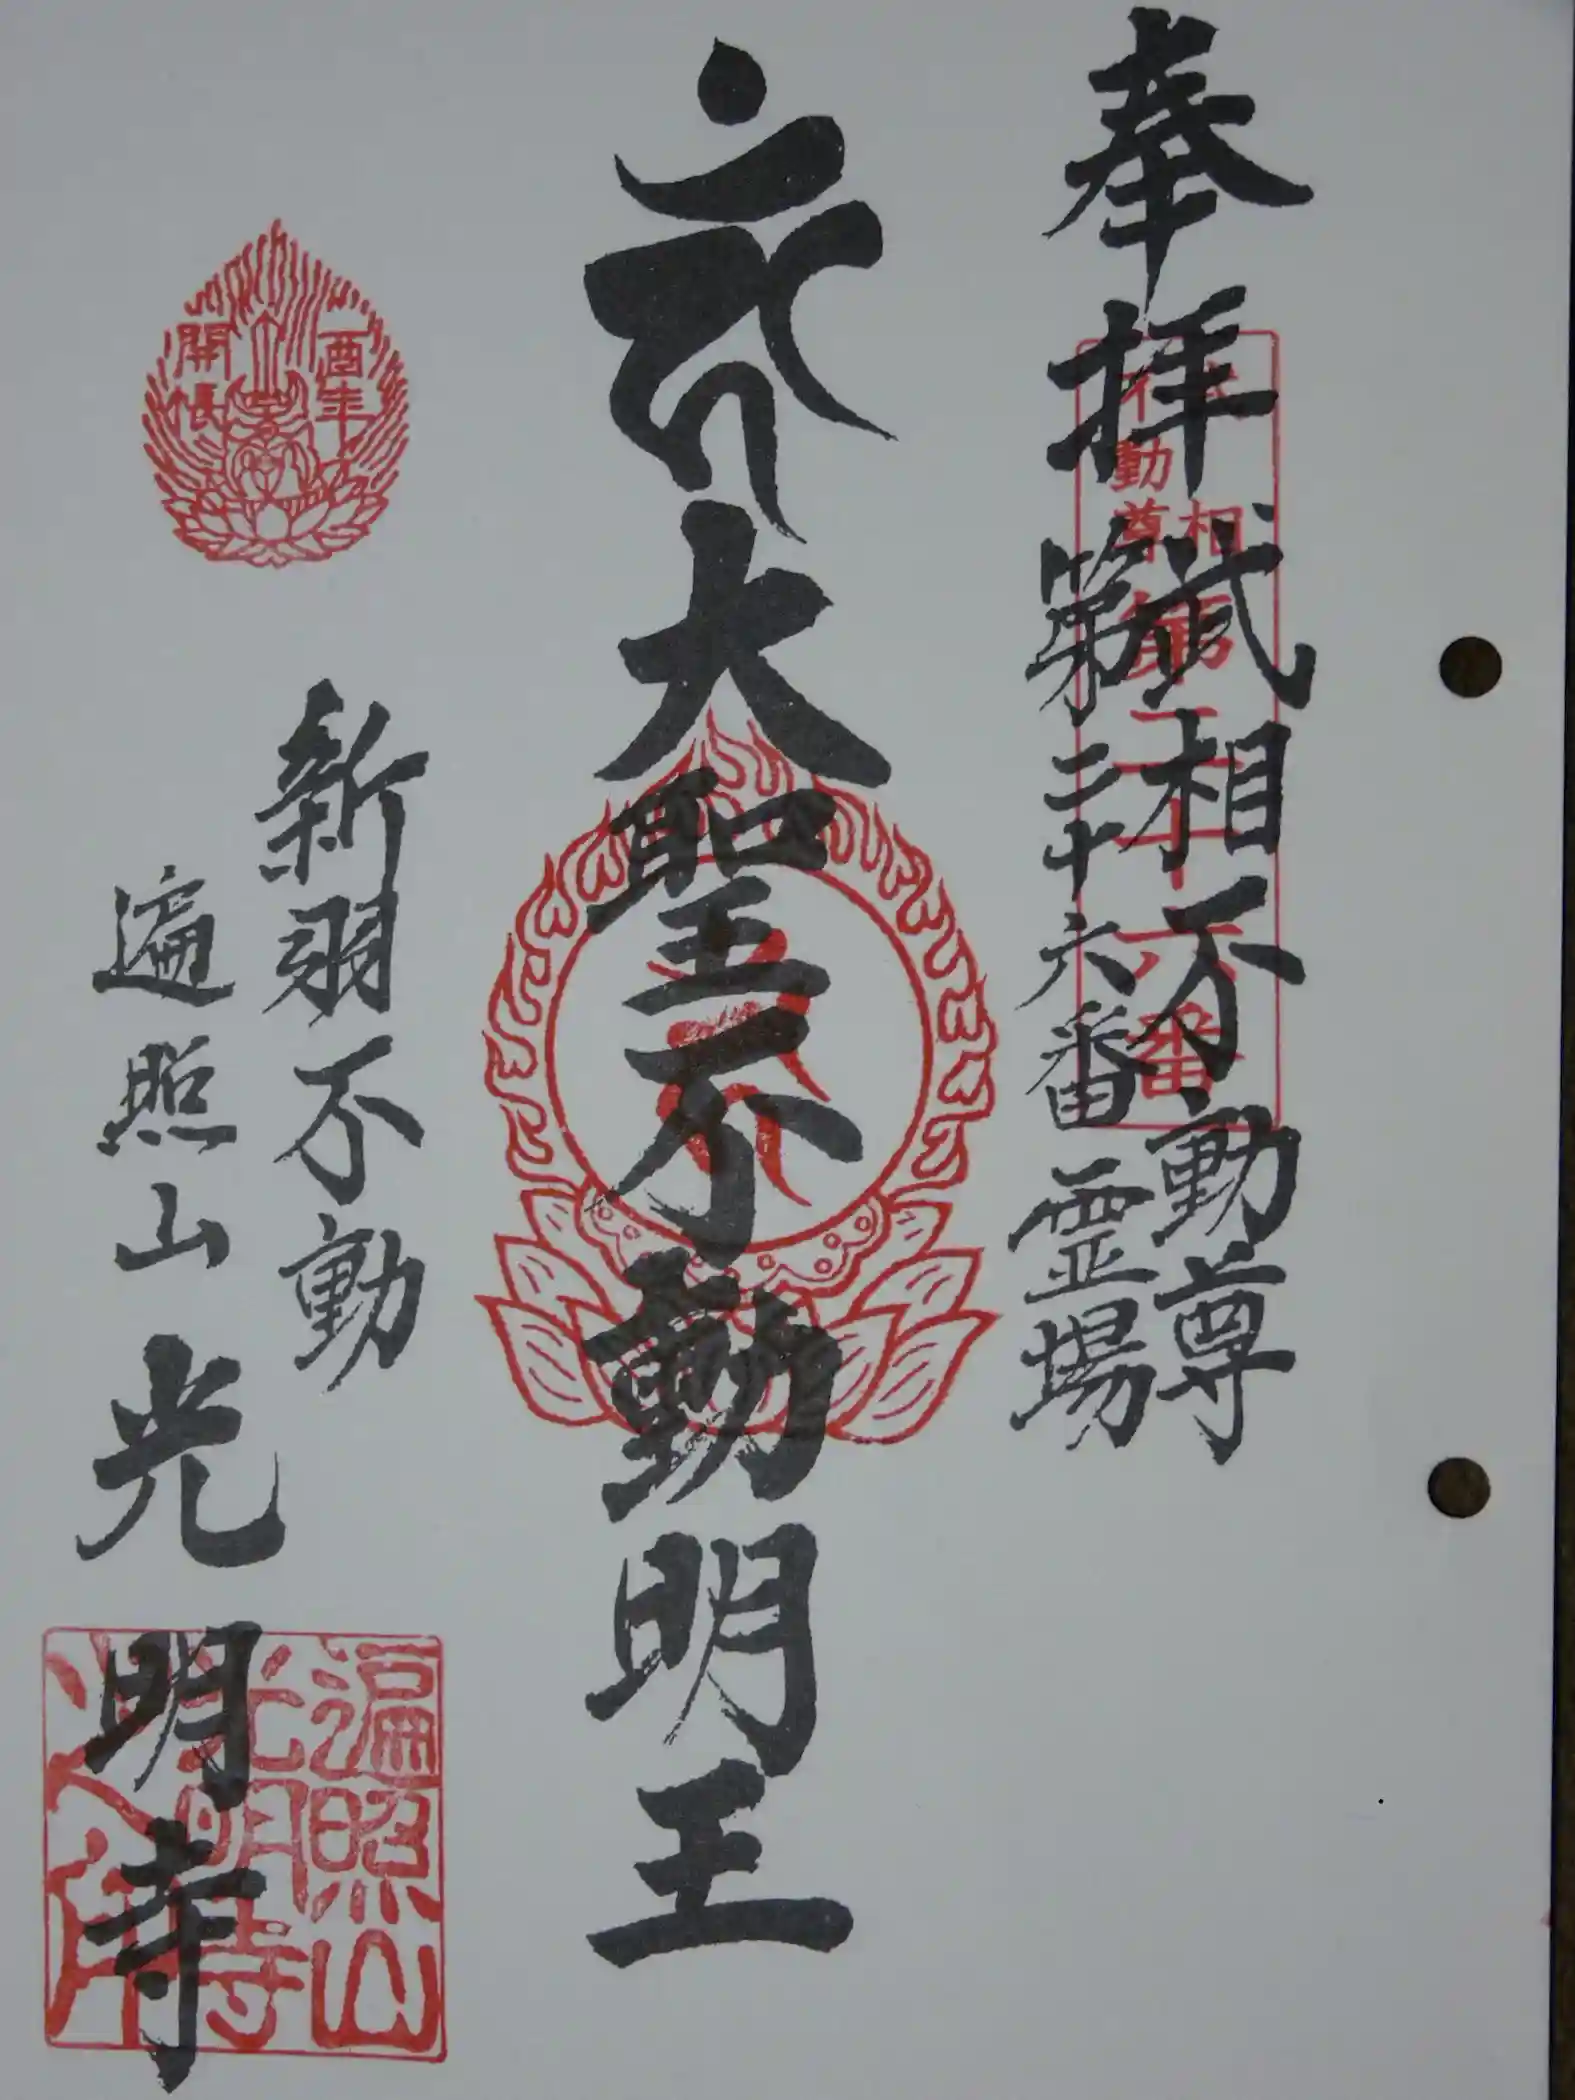 奉拝 武相不動尊
第二十六番 霊場
武相
不動尊
第二十六番
大聖不動明王
酉年
開帳
新羽不動
遍照山 光明寺
遍照山
光明寺